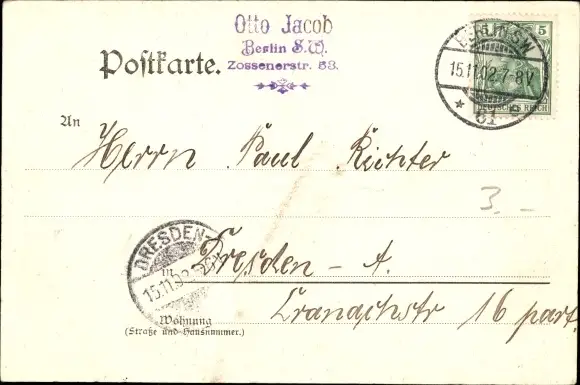 Otto Jacob
Berlin S.W.
Zossenerstr. 53.
Postkarte.
5
DEUTSCHES REICH
BERLIN SW
15.11.02.7-8V
* 61
An
Herrn Paul Richter
3.-
DRESDEN-
15.11.02
in Dresden - A.
Cranachstr 16 part.
Wohnung
(Straße und Hausnummer.)